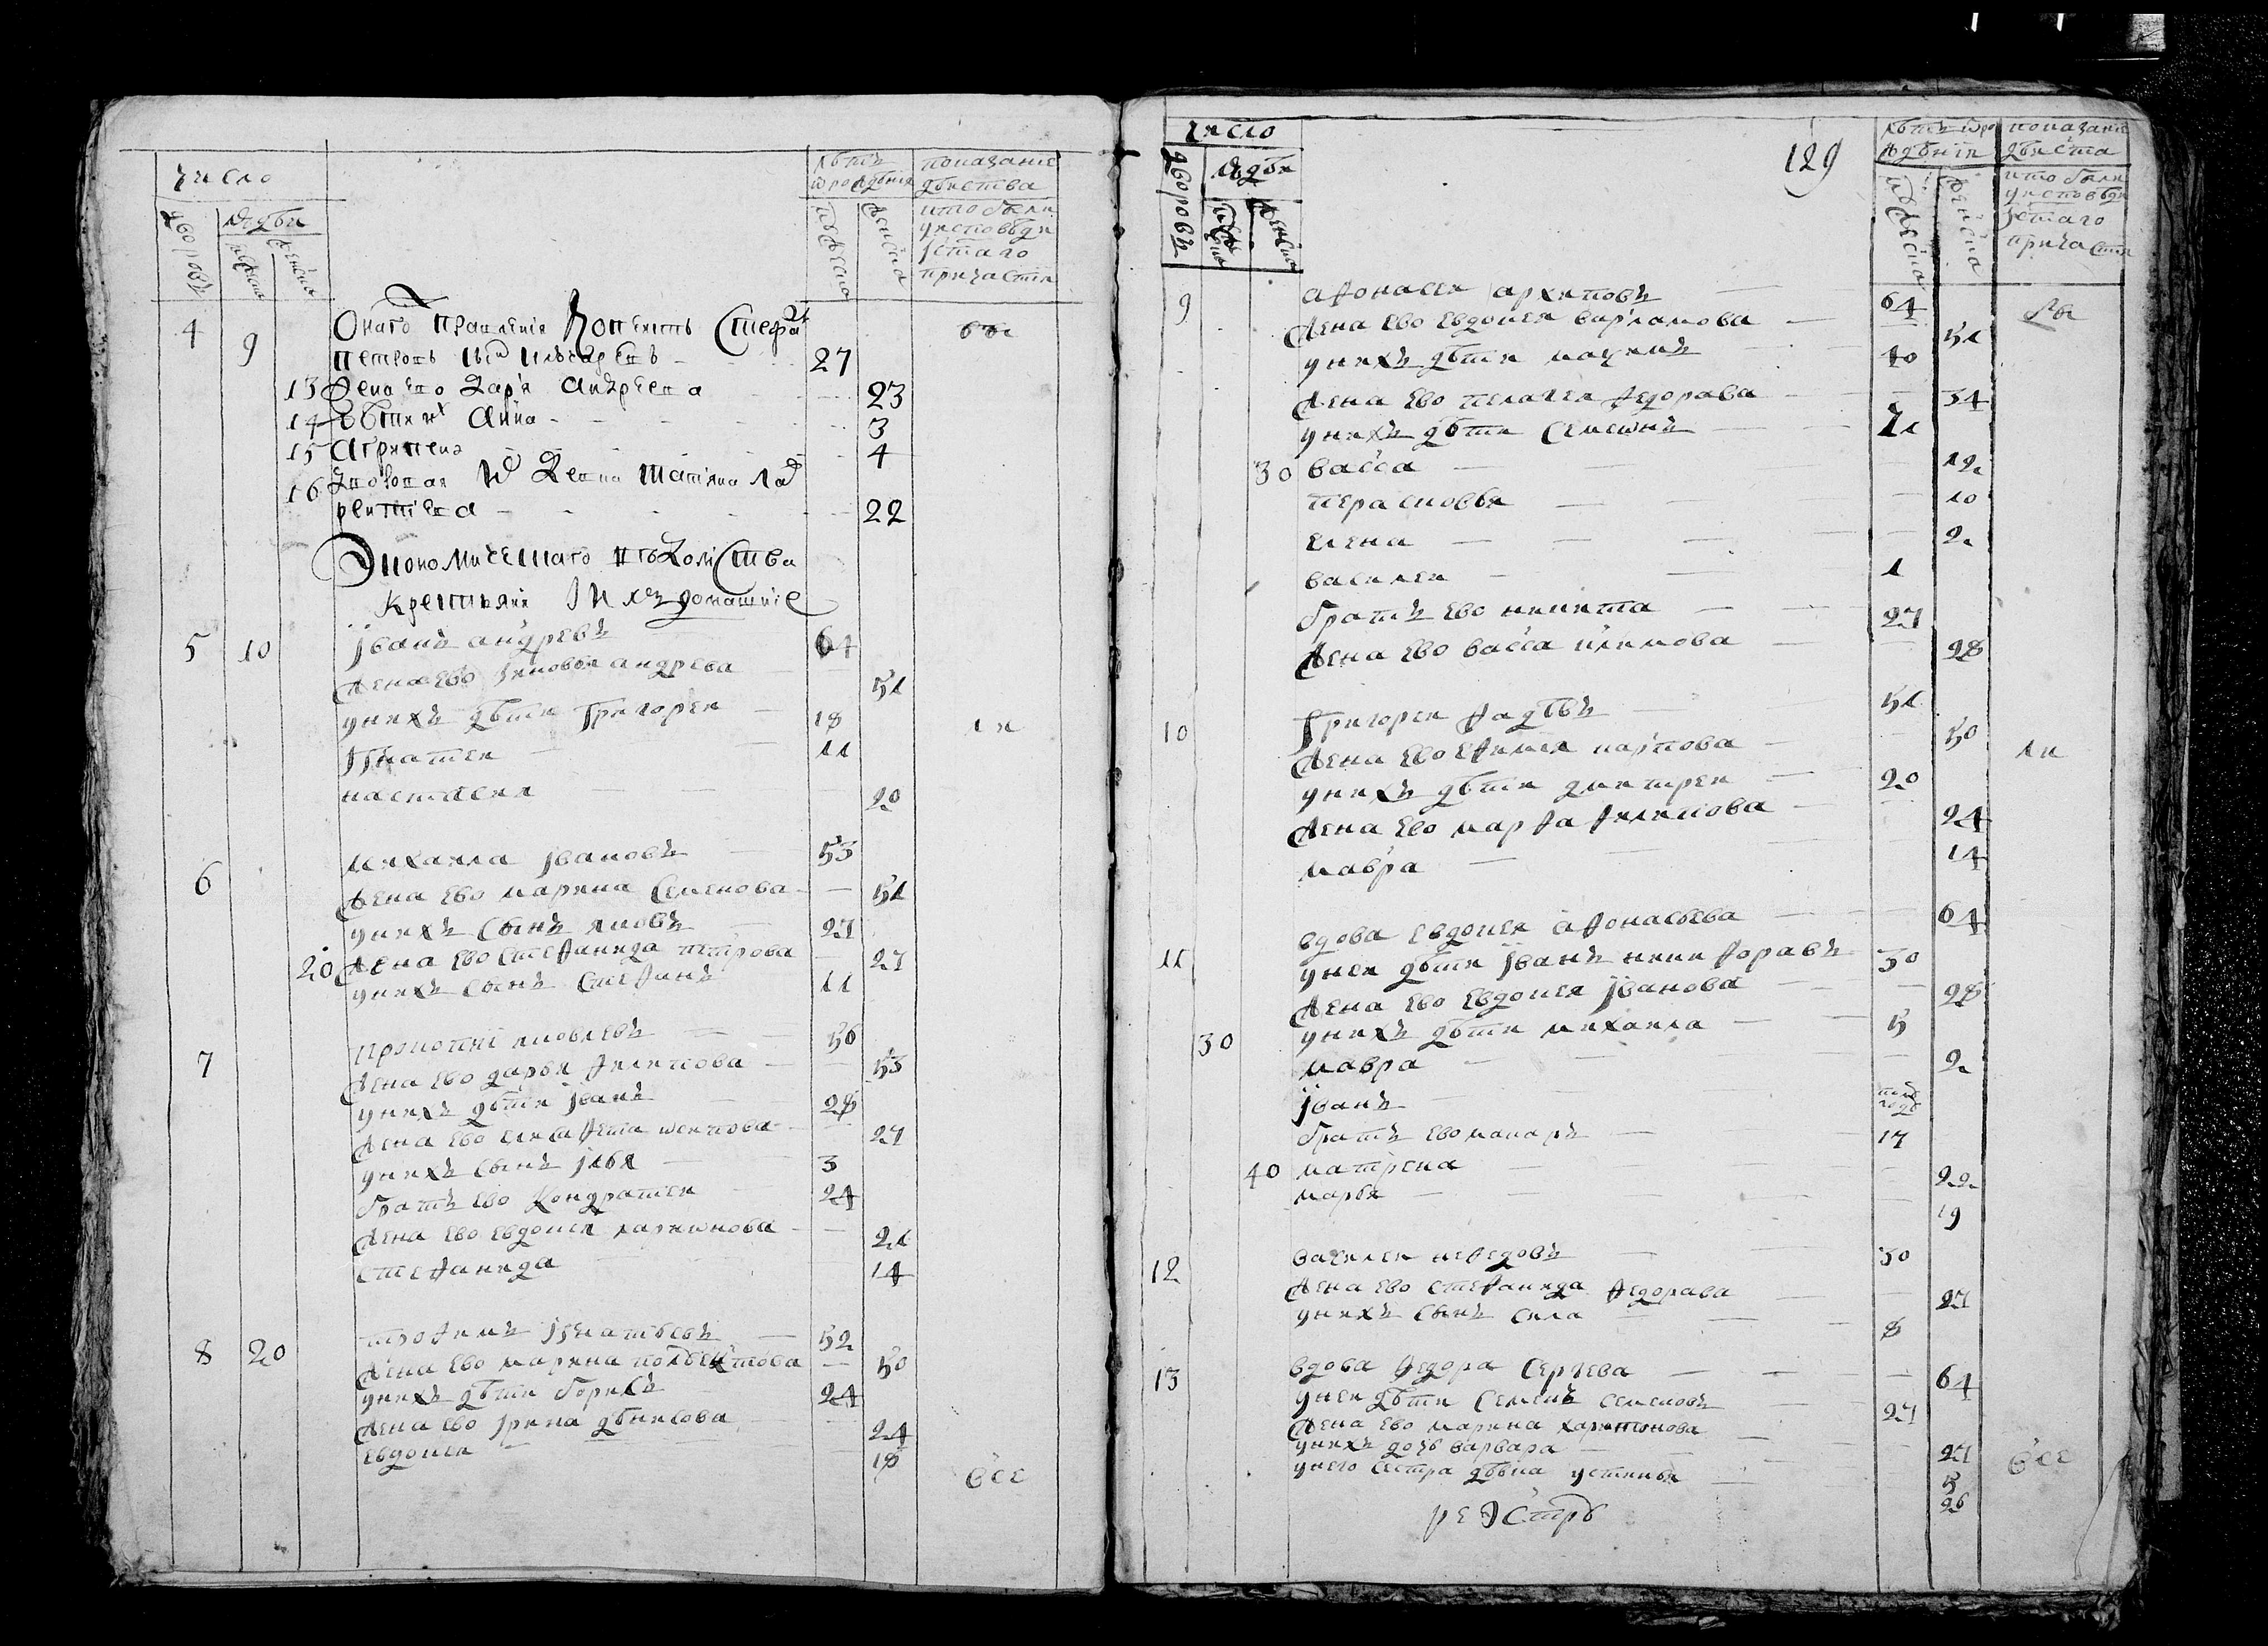 число
дворовъ
людѣи
мужска
женска
лѣтъ
ѿ рождения
мужеска
женска
показание
дѣиства
кто были
у исповѣди
и стаго
причастия
4 9 Онаго правления Копеистъ Стефа
Петровъ 27
13 Жена ево Дарья Андреева 23
14 Дѣти их Анна 3
15 Агрипена 4
16 22
Экономическаго вѣдомства
крестьяня и их домашние
5 10 Иванъ андревъ 64
Жена ево зиновья андрева 51
у нихъ дѣти Григореи 18
Игнатеи 11
настасия 20
6 михаила Ивановъ 53
Жена ево марина Семенова 51
у нихъ сынъ яковъ 27
20 Жена ево стефанида петрова 27
у нихъ сынъ Стефанъ 11
7 яковлевъ 56
Жена ево дарья филипова 53
у нихъ дѣти Иванъ 28
Жена ево елисафета 27
у нихъ сынъ илья 3
братъ ево Кондратеи 24
Жена ево евдокия лариwнова 21
стефанида 14
8 20 трофимъ Игнатьевъ 52
Жена ево марина 50
у нихъ дѣти борисъ 24
Жена ево Ирина дѣнисова 24
евдокия 18
всѣ
129
число
дворовъ
людѣи
мужска
женска
лѣтъ ѿ ро
ждѣния
мужеска
женска
показание
дѣиства
кто были
у исповѣди
и стаго
причастия
9 афонасеи архиповъ 64
Жена ево Евдокия варламова 51
у нихъ дѣти максимъ 40
Жена ево пелагея федорава 34
у нихъ дѣти Семионъ 21
30 васса 12
перасковья 10
елена 2
василеи 1
братъ ево никита 27
Жена ево васса климова 28
10 Григореи фадѣвъ 51
Жена ево ефимия карпова 50
у нихъ дѣти дмитреи 20
Жена ево марфа филипова 24
мавра 14
11 вдова евдокия афонасьева 64
у неи дѣти Иванъ никифоравъ 30
Жена ево Евдокия Иванова 28
30 у нихъ дѣти михаила 5
мавра 2
Иванъ полъ года
братъ ево макаръ 17
40 матрена 22
марья 19
12 василеи нефедовъ 30
Жена ево стефанида федорава 27
у нихъ сынъ сила 8
13 вдова федора Сергѣева 64
у неи дѣти Семенъ семеновъ 27
Жена ево марина харитонова 27
у нихъ дочь варвара 5
у него сестра дѣвка устинья 26
всѣ